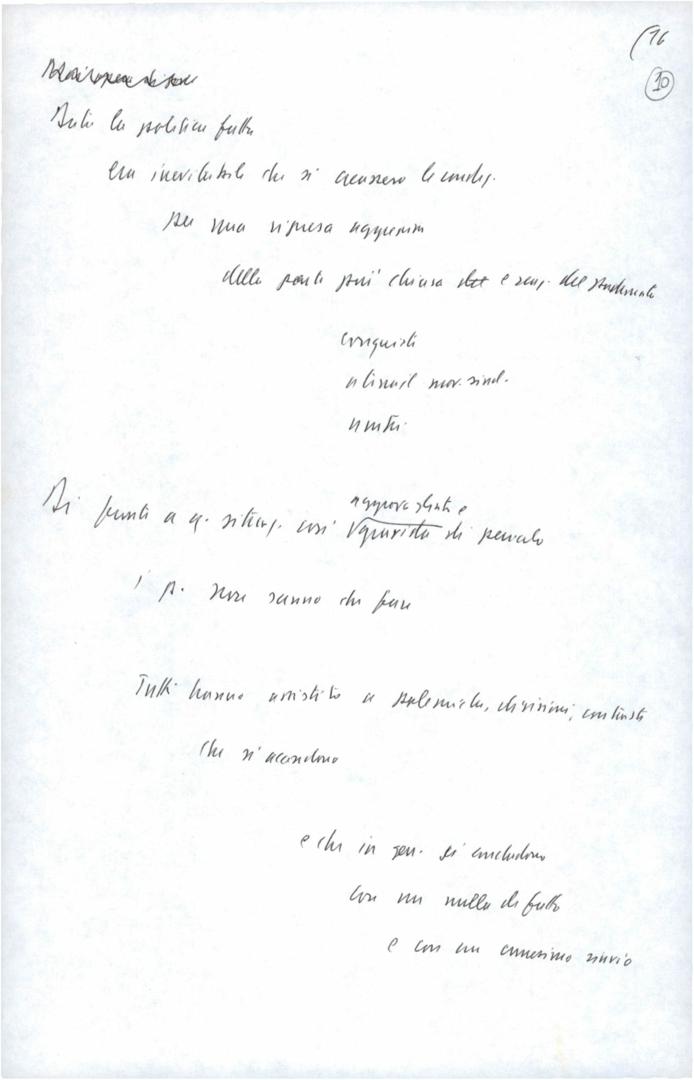 (16
10
la politica fatta
era inevitabile che si creassero le condiz.
per una ripresa aggressiva
della parte più chiusa e reaz. del padronato
conquiste
mov. sind.
unità
Di fronte a q. situaz. così
aggrovigliata e
di pericolo
i p. non sanno che fare
Tutti hanno assistito a polemiche, divisioni, contrasti
che si accendono
e che in gen. si concludono
con un nulla di fatto
e con un ennesimo rinvio